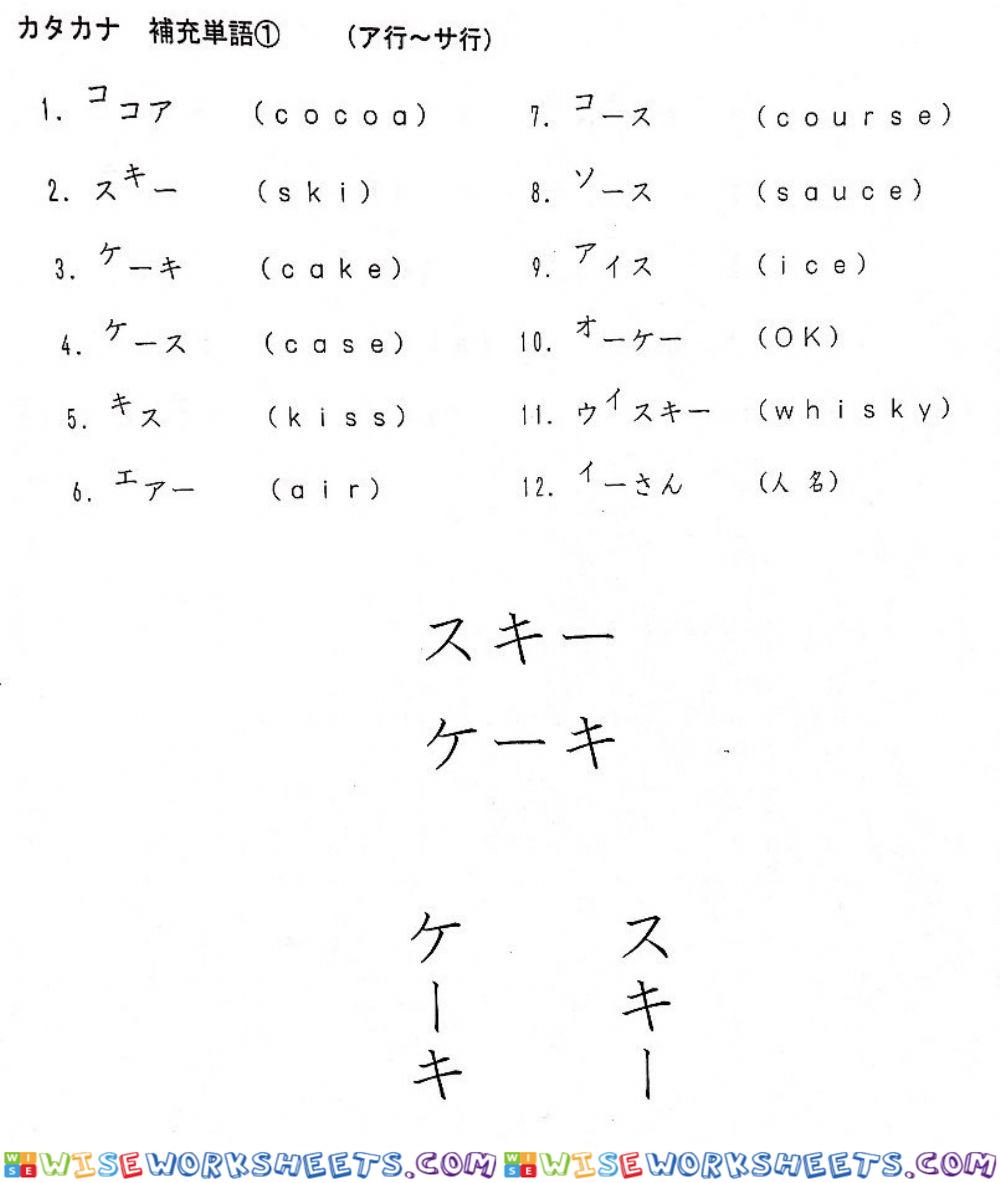 カタカナ 補充単語① (ア行～サ行)
1. ココア (cocoa)
2. スキー (ski)
3. ケーキ (cake)
4. ケース (case)
5. キス (kiss)
6. エアー (air)
7. コース (course)
8. ソース (sauce)
9. アイス (ice)
10. オーケー (OK)
11. ウイスキー (whisky)
12. イーさん (人名)
スキー
ケーキ
スキー
ケーキ
WISEWORKSHEETS.COM WISEWORKSHEETS.COM